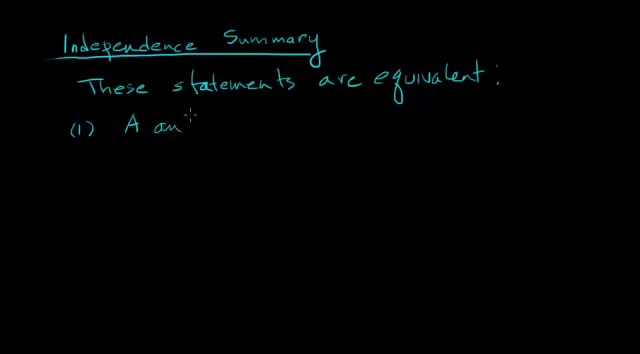 Independence Summary
These statements are equivalent:
(1) A an